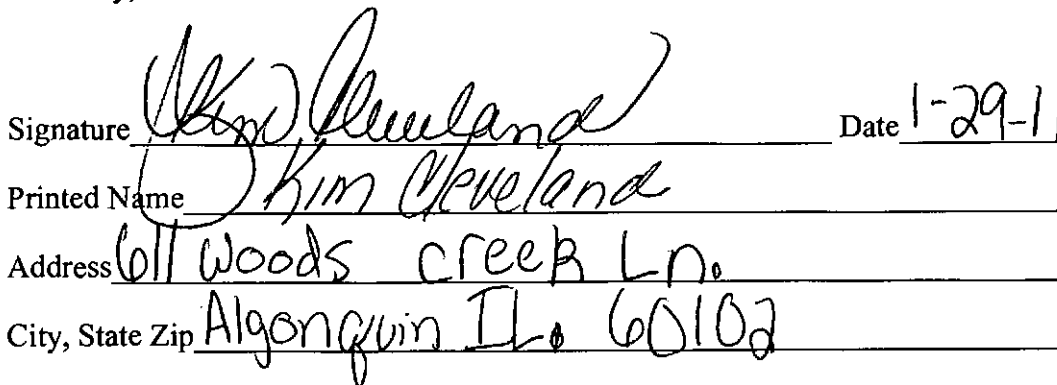 Signature Kim Cleveland Date 1-29-1
Printed Name Kim Cleveland
Address 611 Woods Creek Ln.
City, State Zip Algonquin IL. 60102